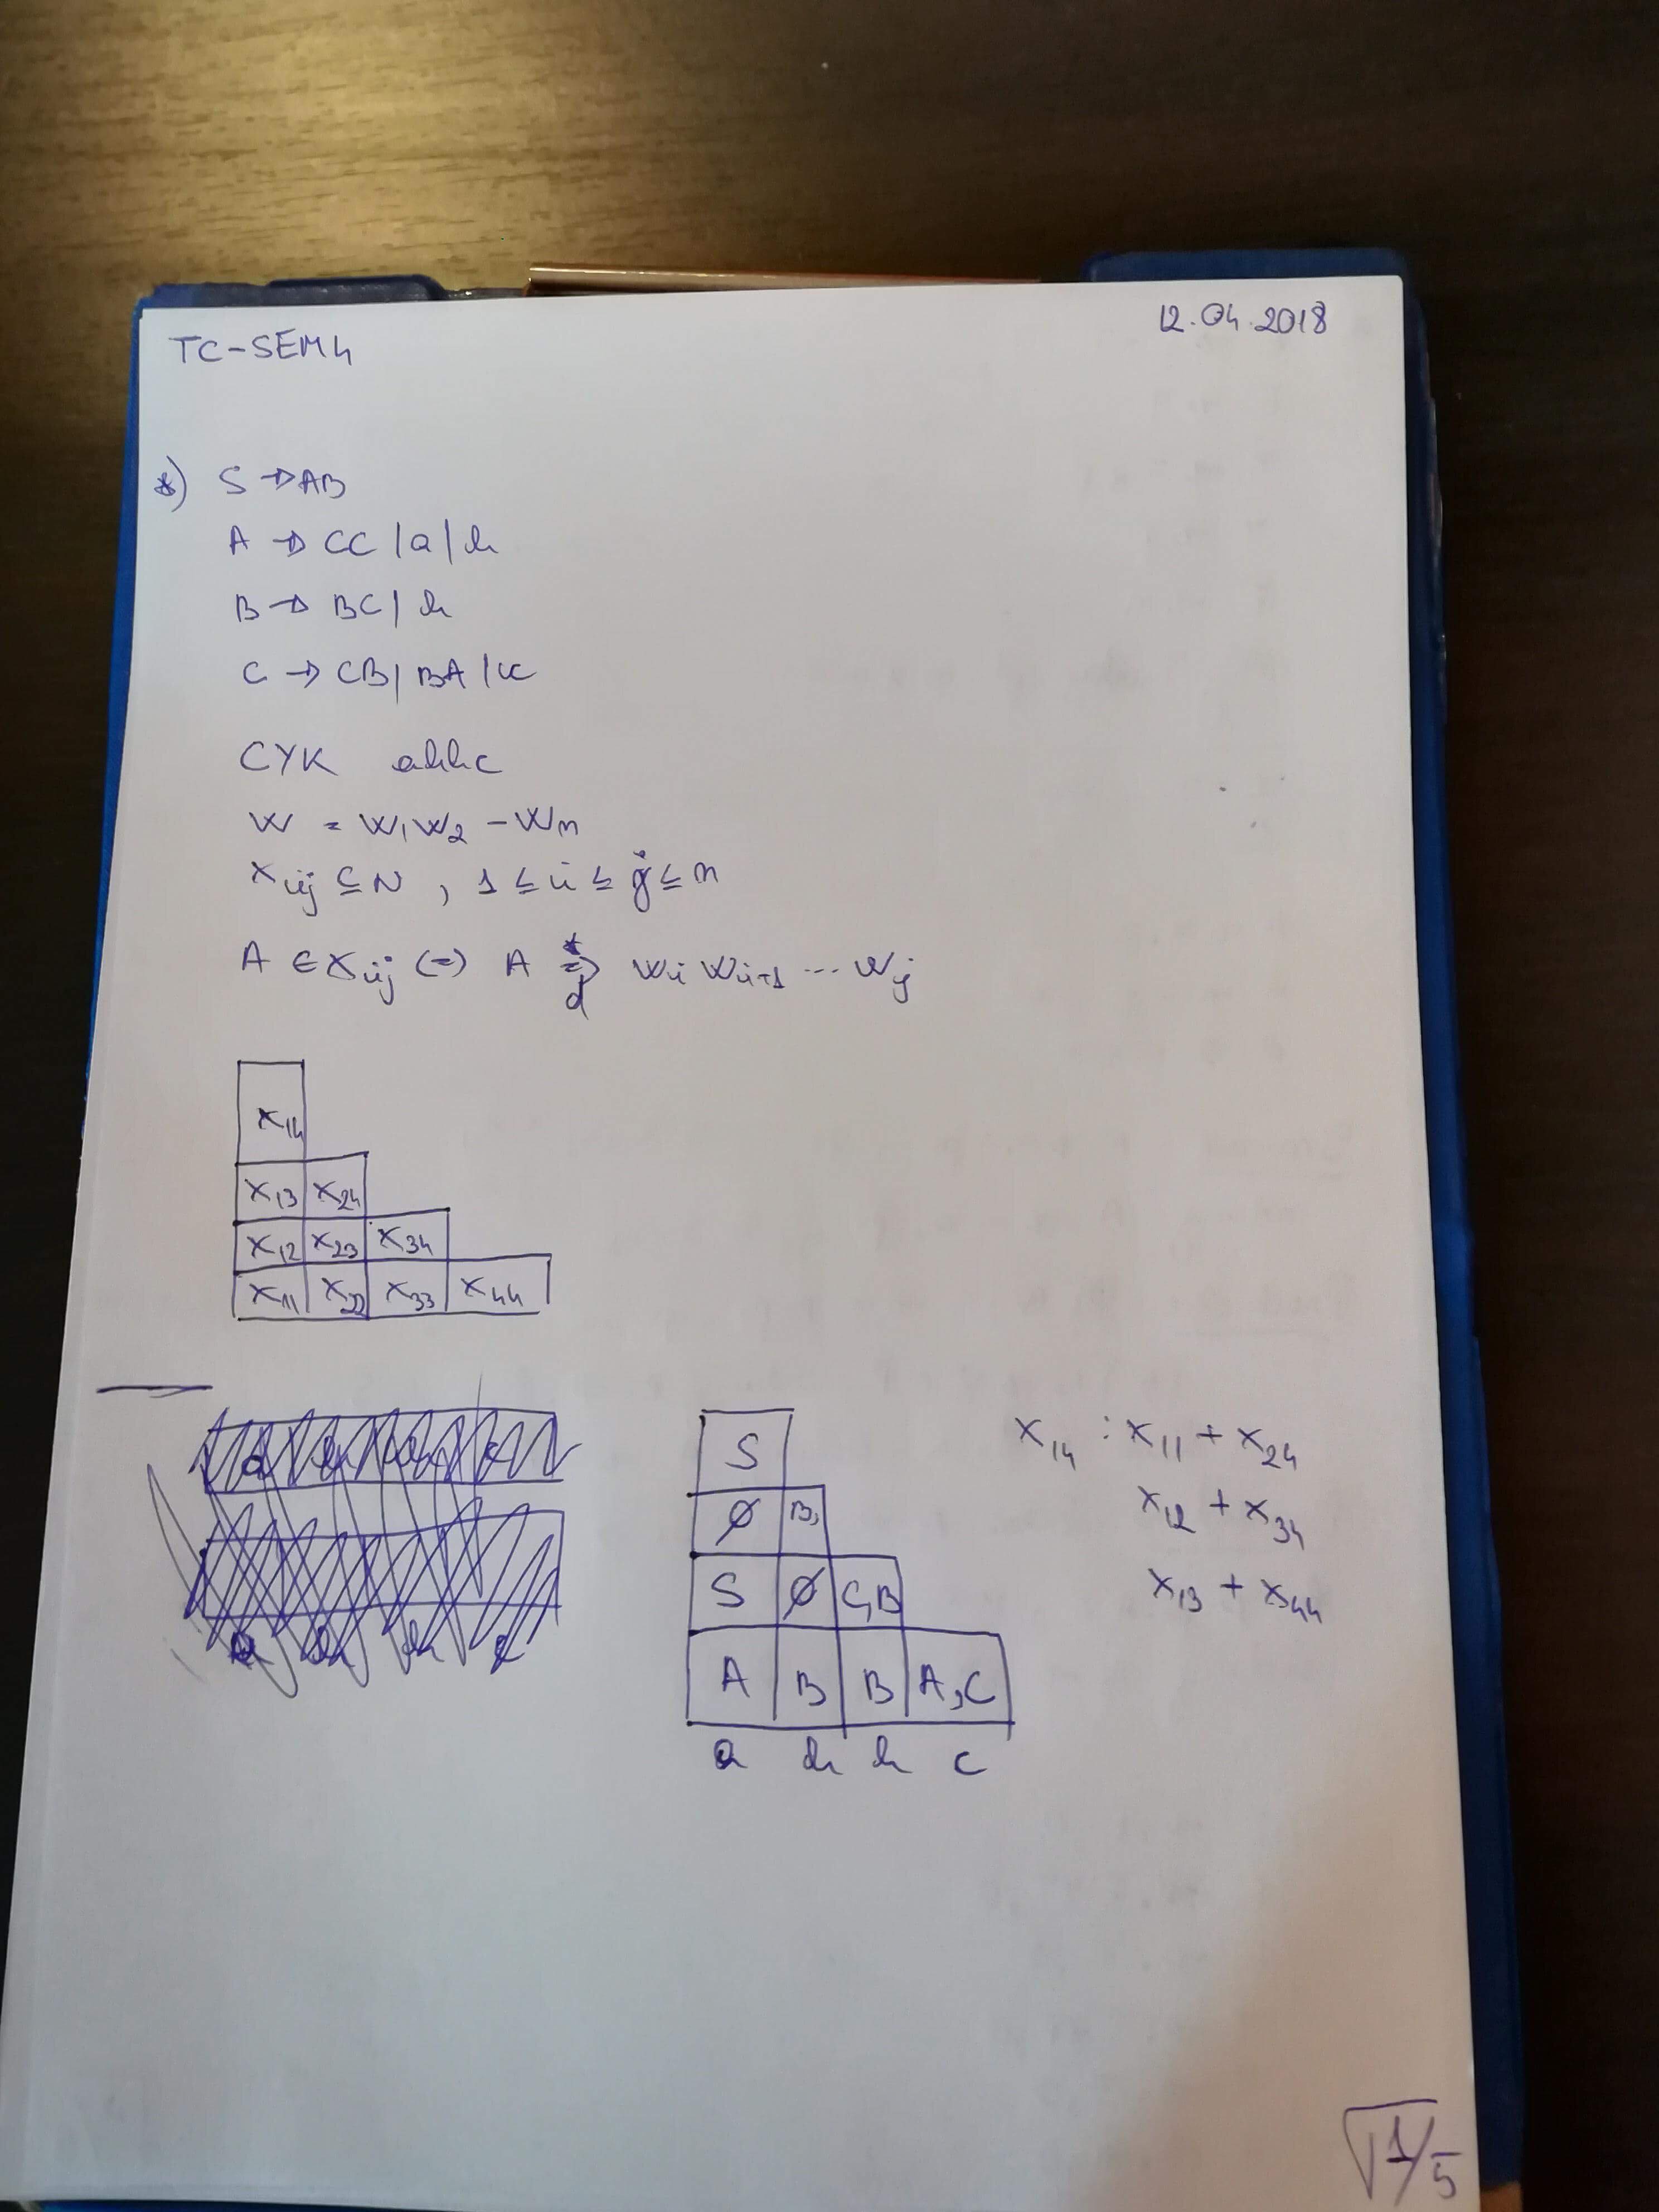 12.04.2018
TC-SEM4
*) S → AB
A → CC | a | b
B → BC | b
C → CB | BA | c
CYK abbc
W = W₁W₂ - Wₙ
Xij ⊆ N , 1 ≤ i ≤ j ≤ n
A ∈ Xij (=) A *⇒d Wi Wi+1 ... Wj
X14
X13 X24
X12 X23 X34
X11 X22 X33 X44
S
∅ B,
S ∅ C,B
A B B A,C
a b b c
X14 : X11 + X24
X12 + X34
X13 + X44
1/5